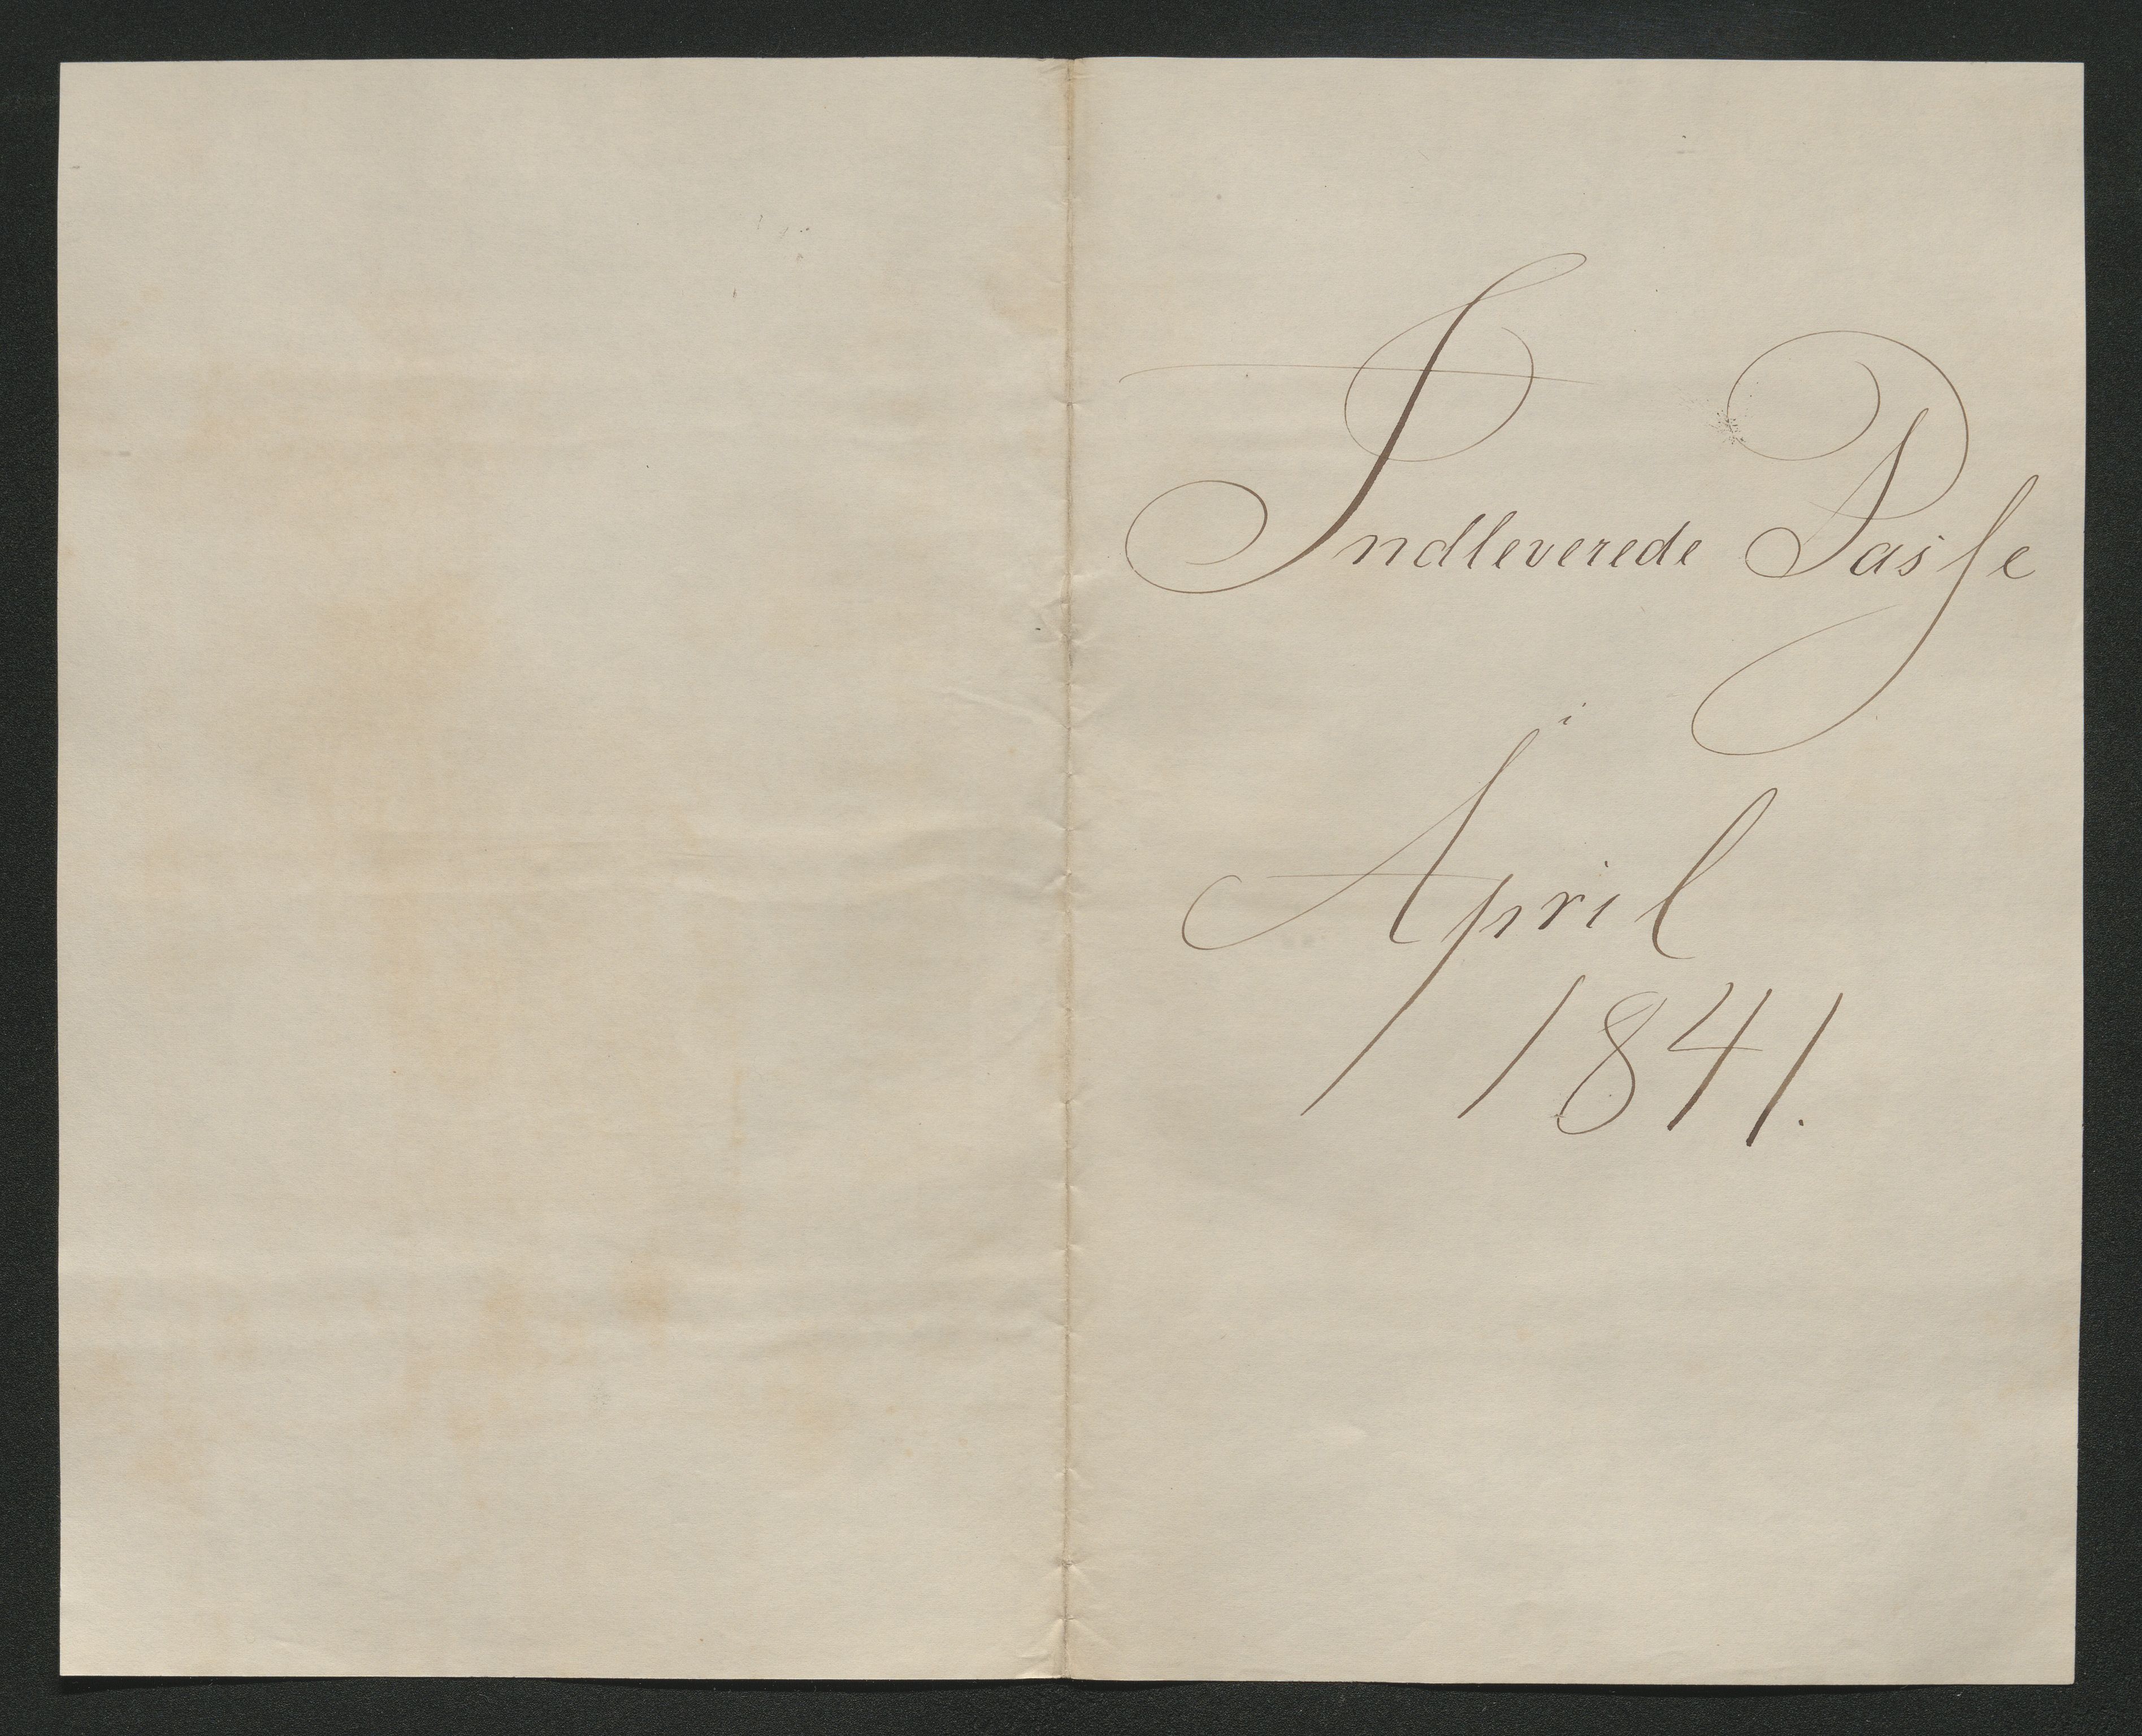 Indleverede Passe
i
April
1841.